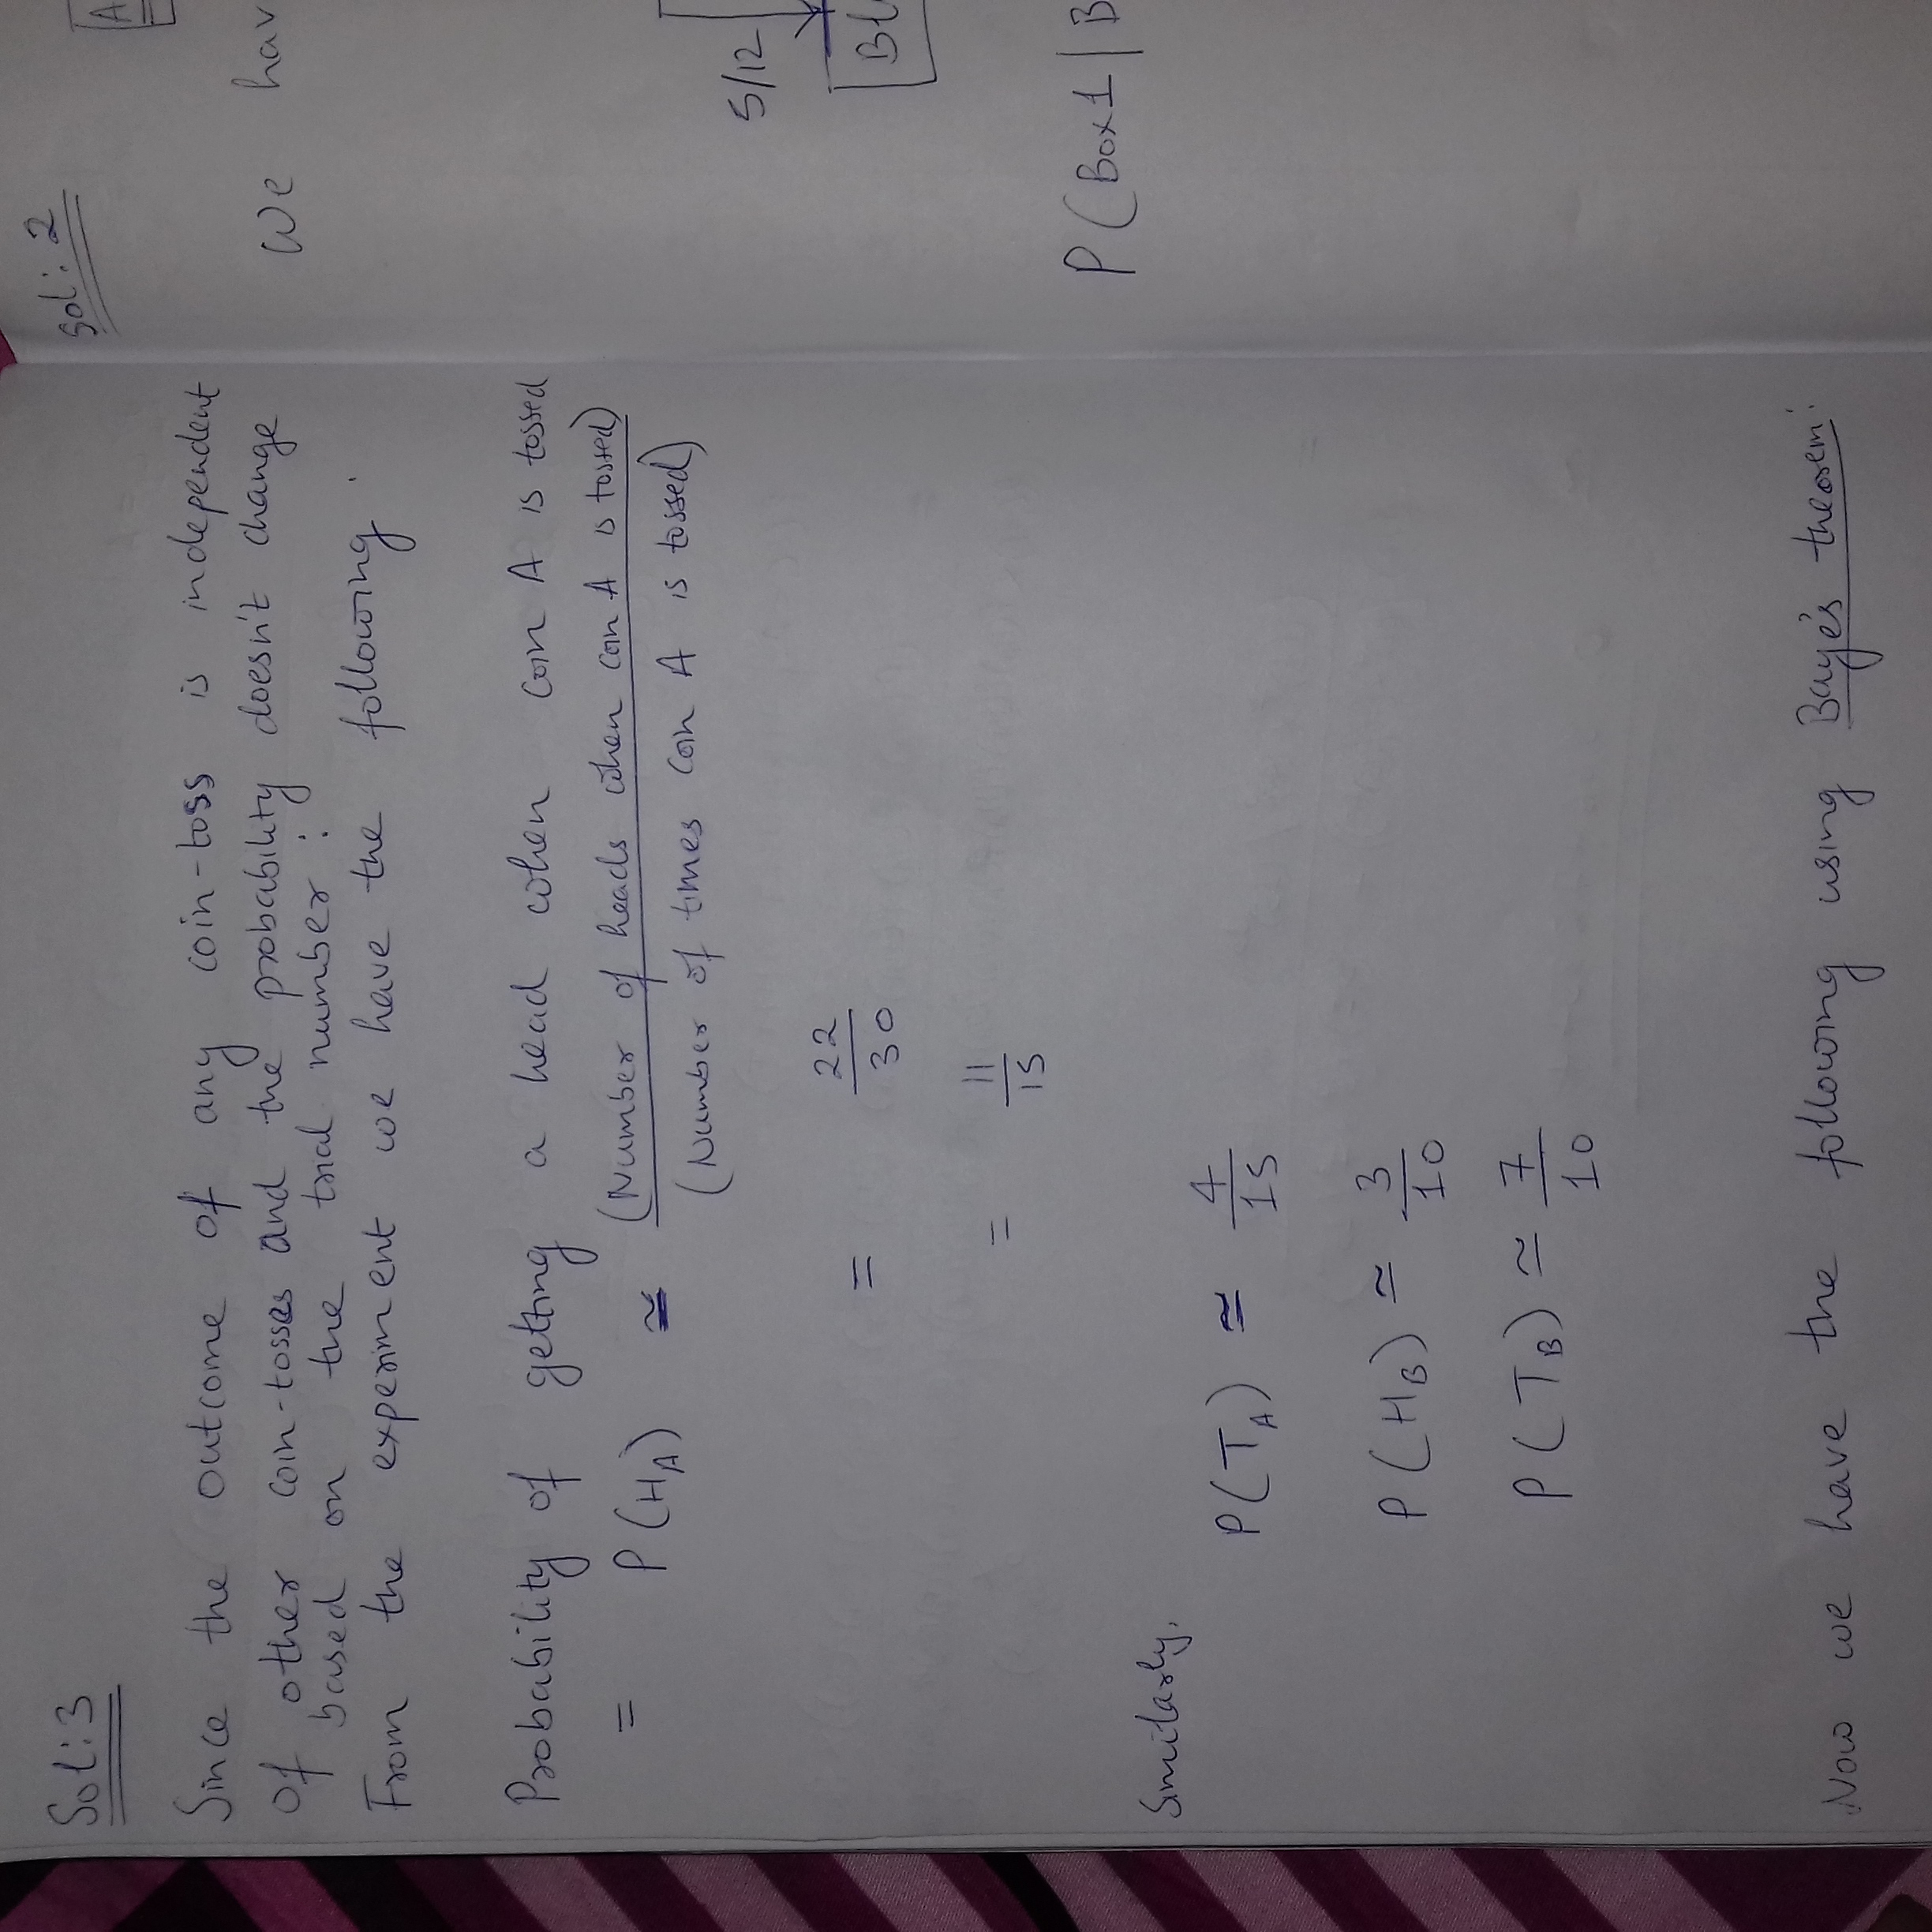 Sol: 3
Since the outcome of any coin-toss is independent
of other coin-tosses and the probability doesn't change
based on the trial number :
From the experiment we have the following :
Probability of getting a head when coin A is tossed
= P(H_A) ≅ (Number of heads when coin A is tossed) / (Number of times coin A is tossed)
= 22/30
= 11/15
Similarly,
P(T_A) ≅ 4/15
P(H_B) ≃ 3/10
P(T_B) ≃ 7/10
Now we have the following using Baye's theorem:
Sol: 2
A
We hav
5/12
Bl
P(Box1|B